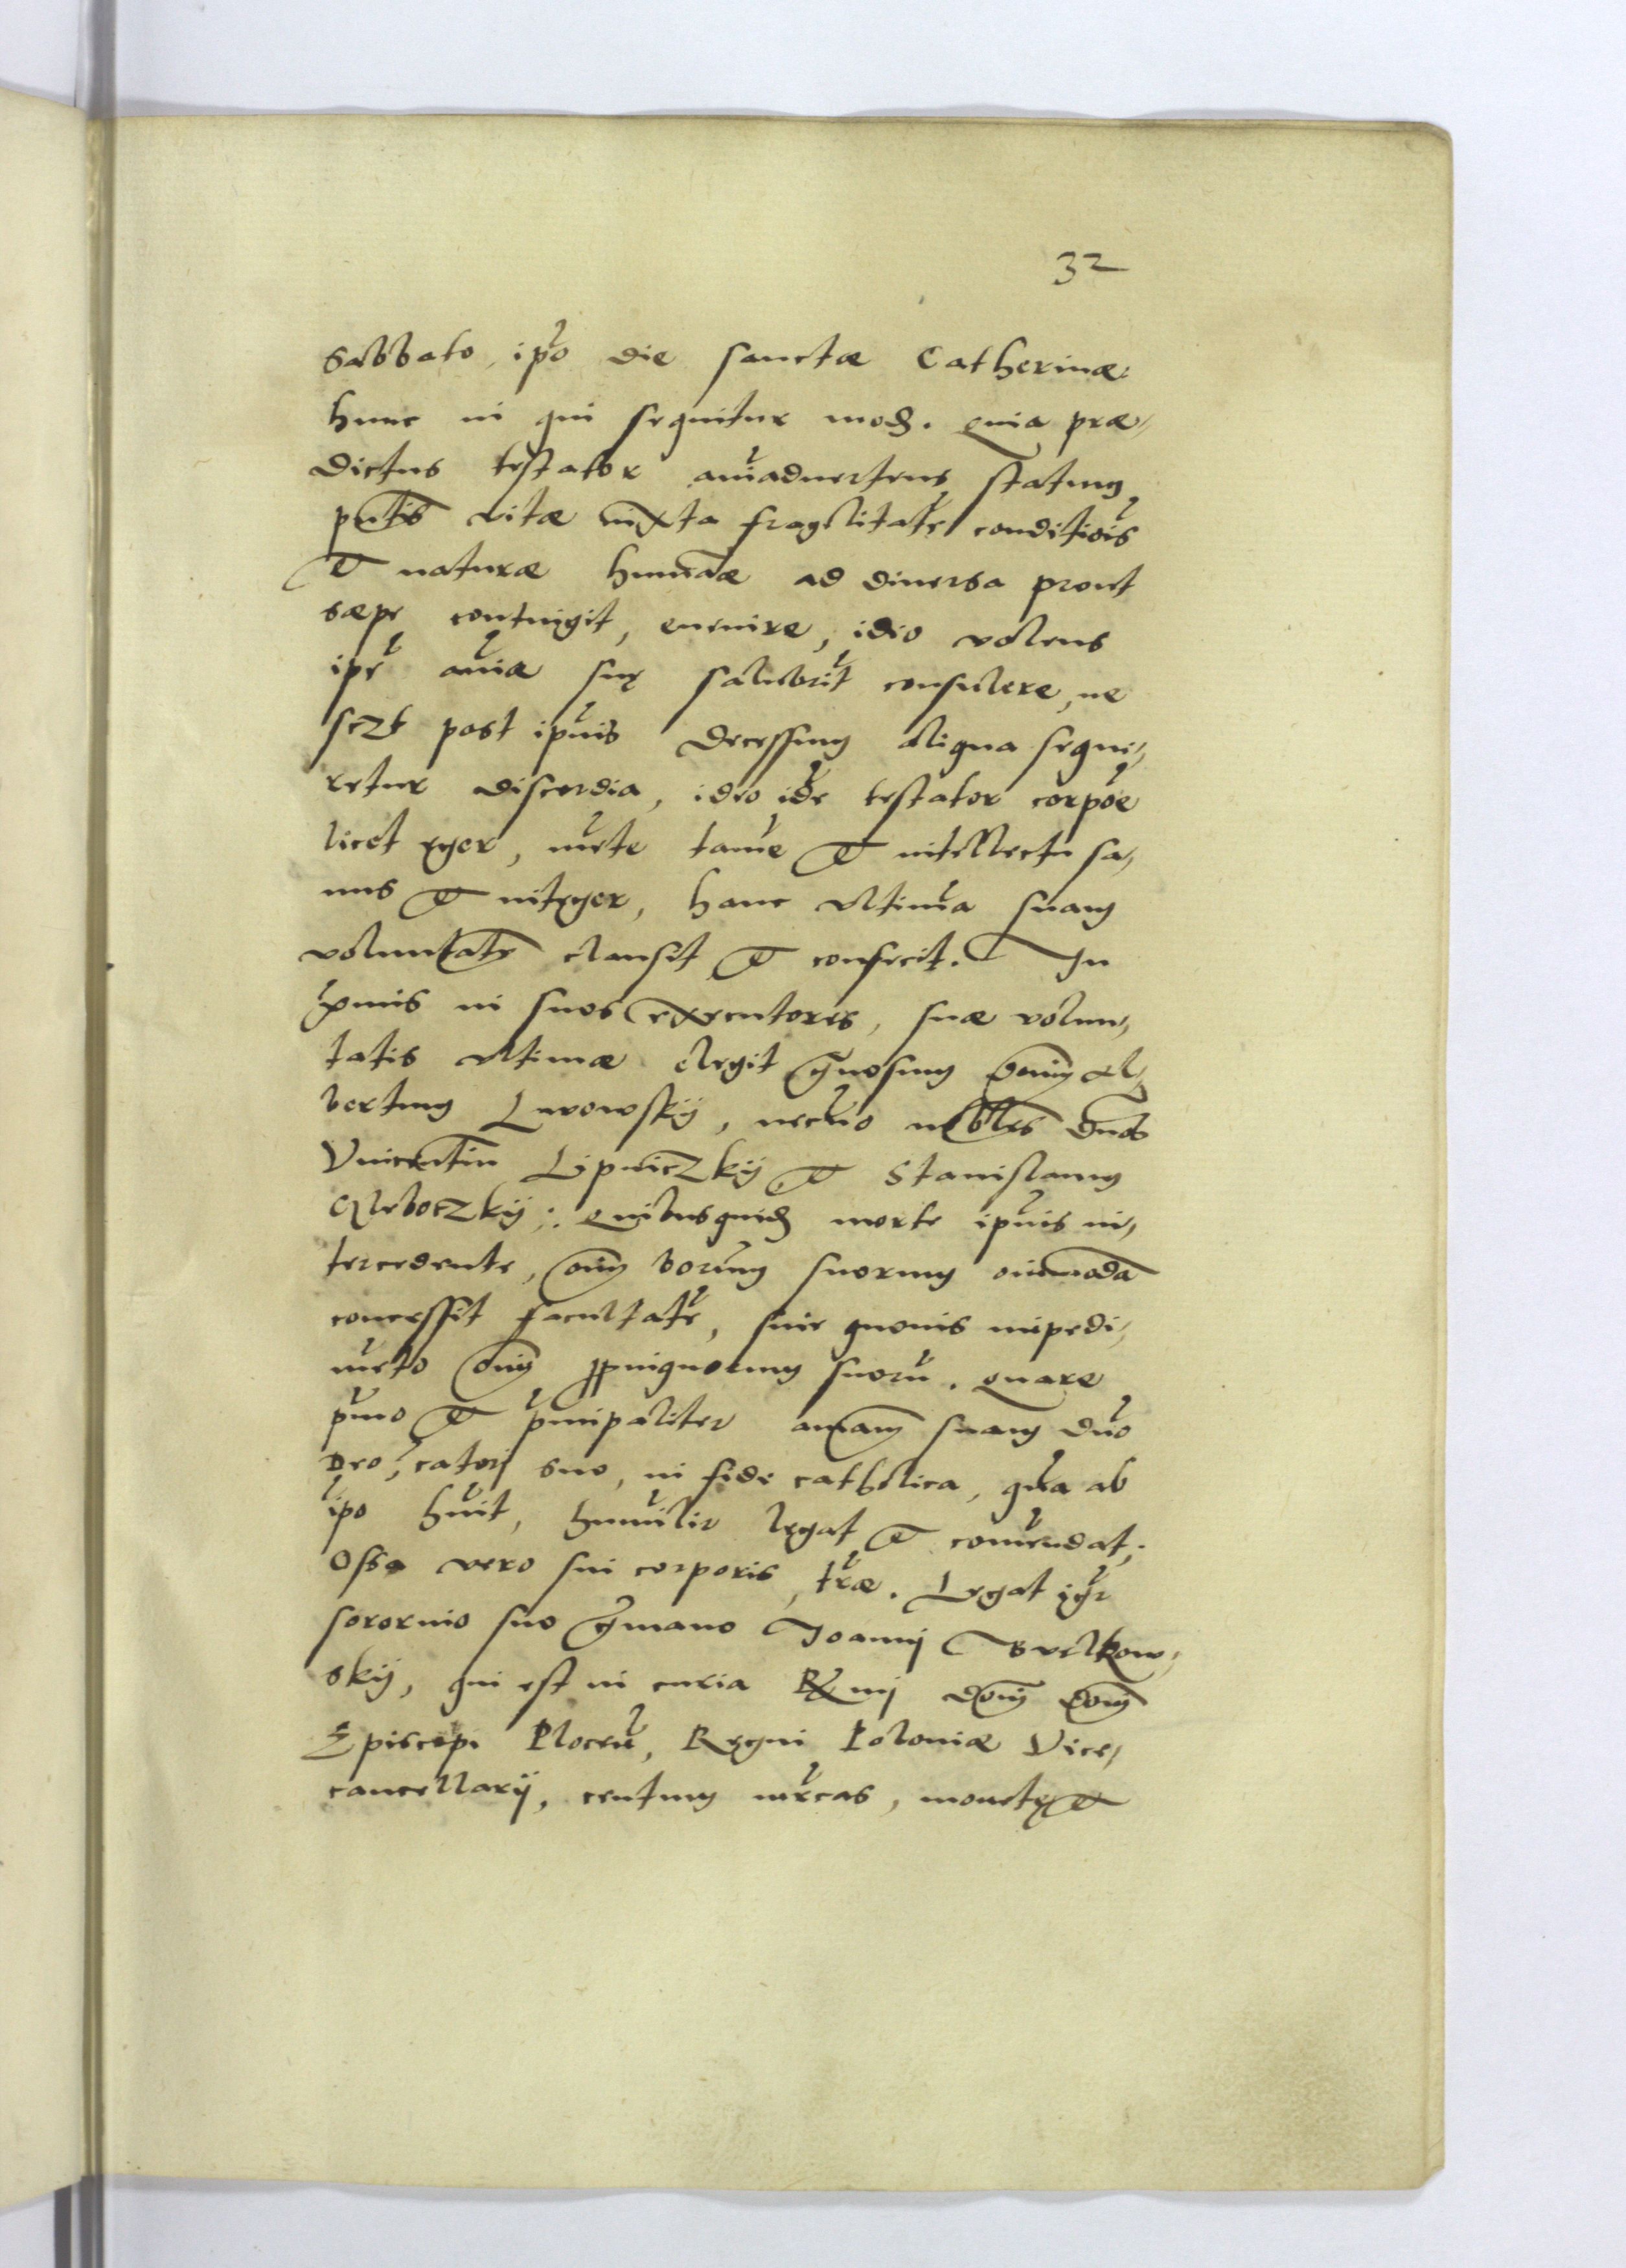 32
Sabbato, ipo die sanctæ Catherinæ
hunc in qui sequitur mod. Quia præ,
dictus testator aniaduertens statum
pntis vitæ iuxta fragilitate conditiois
et naturæ humanæ ad diuersa prout
sæpe contingit, euenire, idio volens
ipe aniæ suę salubrit consulere, ne
sczt post ipius decessum aliqua sequi,
retur discordia, ideo ide testator corpoe
licet ęger, mete tame et intellectu sa,
nus et integer, hanc vltima suam
voluntate clausit et confecit. In
primis in suos executores, suæ volun,
tatis vltimæ elegit gnosum dnum Al,
bertum Lwowskÿ, necno nobles dnos
Vincentiu Lipniczkÿ et Stanislaum
Chleboczkÿ: Quibusquid morte ipius in,
tercedente, oium bonrum suorum oimoda
concessit facultate, sine quouis impedi,
meto oium ppinquorum suoru. Quare
pmo et pnnpaliter animam suam dno
Deo, catori suo, in fide catholica, qua ab
ipo huit, humilir legat et comendat;
Ossa vero sui corporis, træ. Legat igr
sororino suo gmano Joannj Svelkow,
skÿ, qui est in curia Rmi domi domi
Episcopi Plocen, Regni Poloniæ Vice,
cancellarÿ, centum mrcas, monetę et